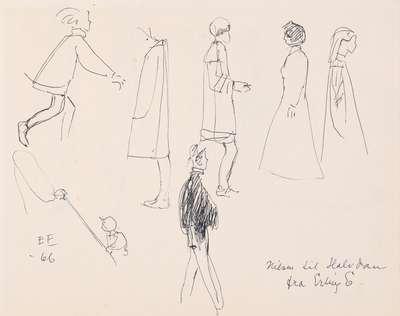 EE
-66
Hilsen til Halvdan
fra Erling E.